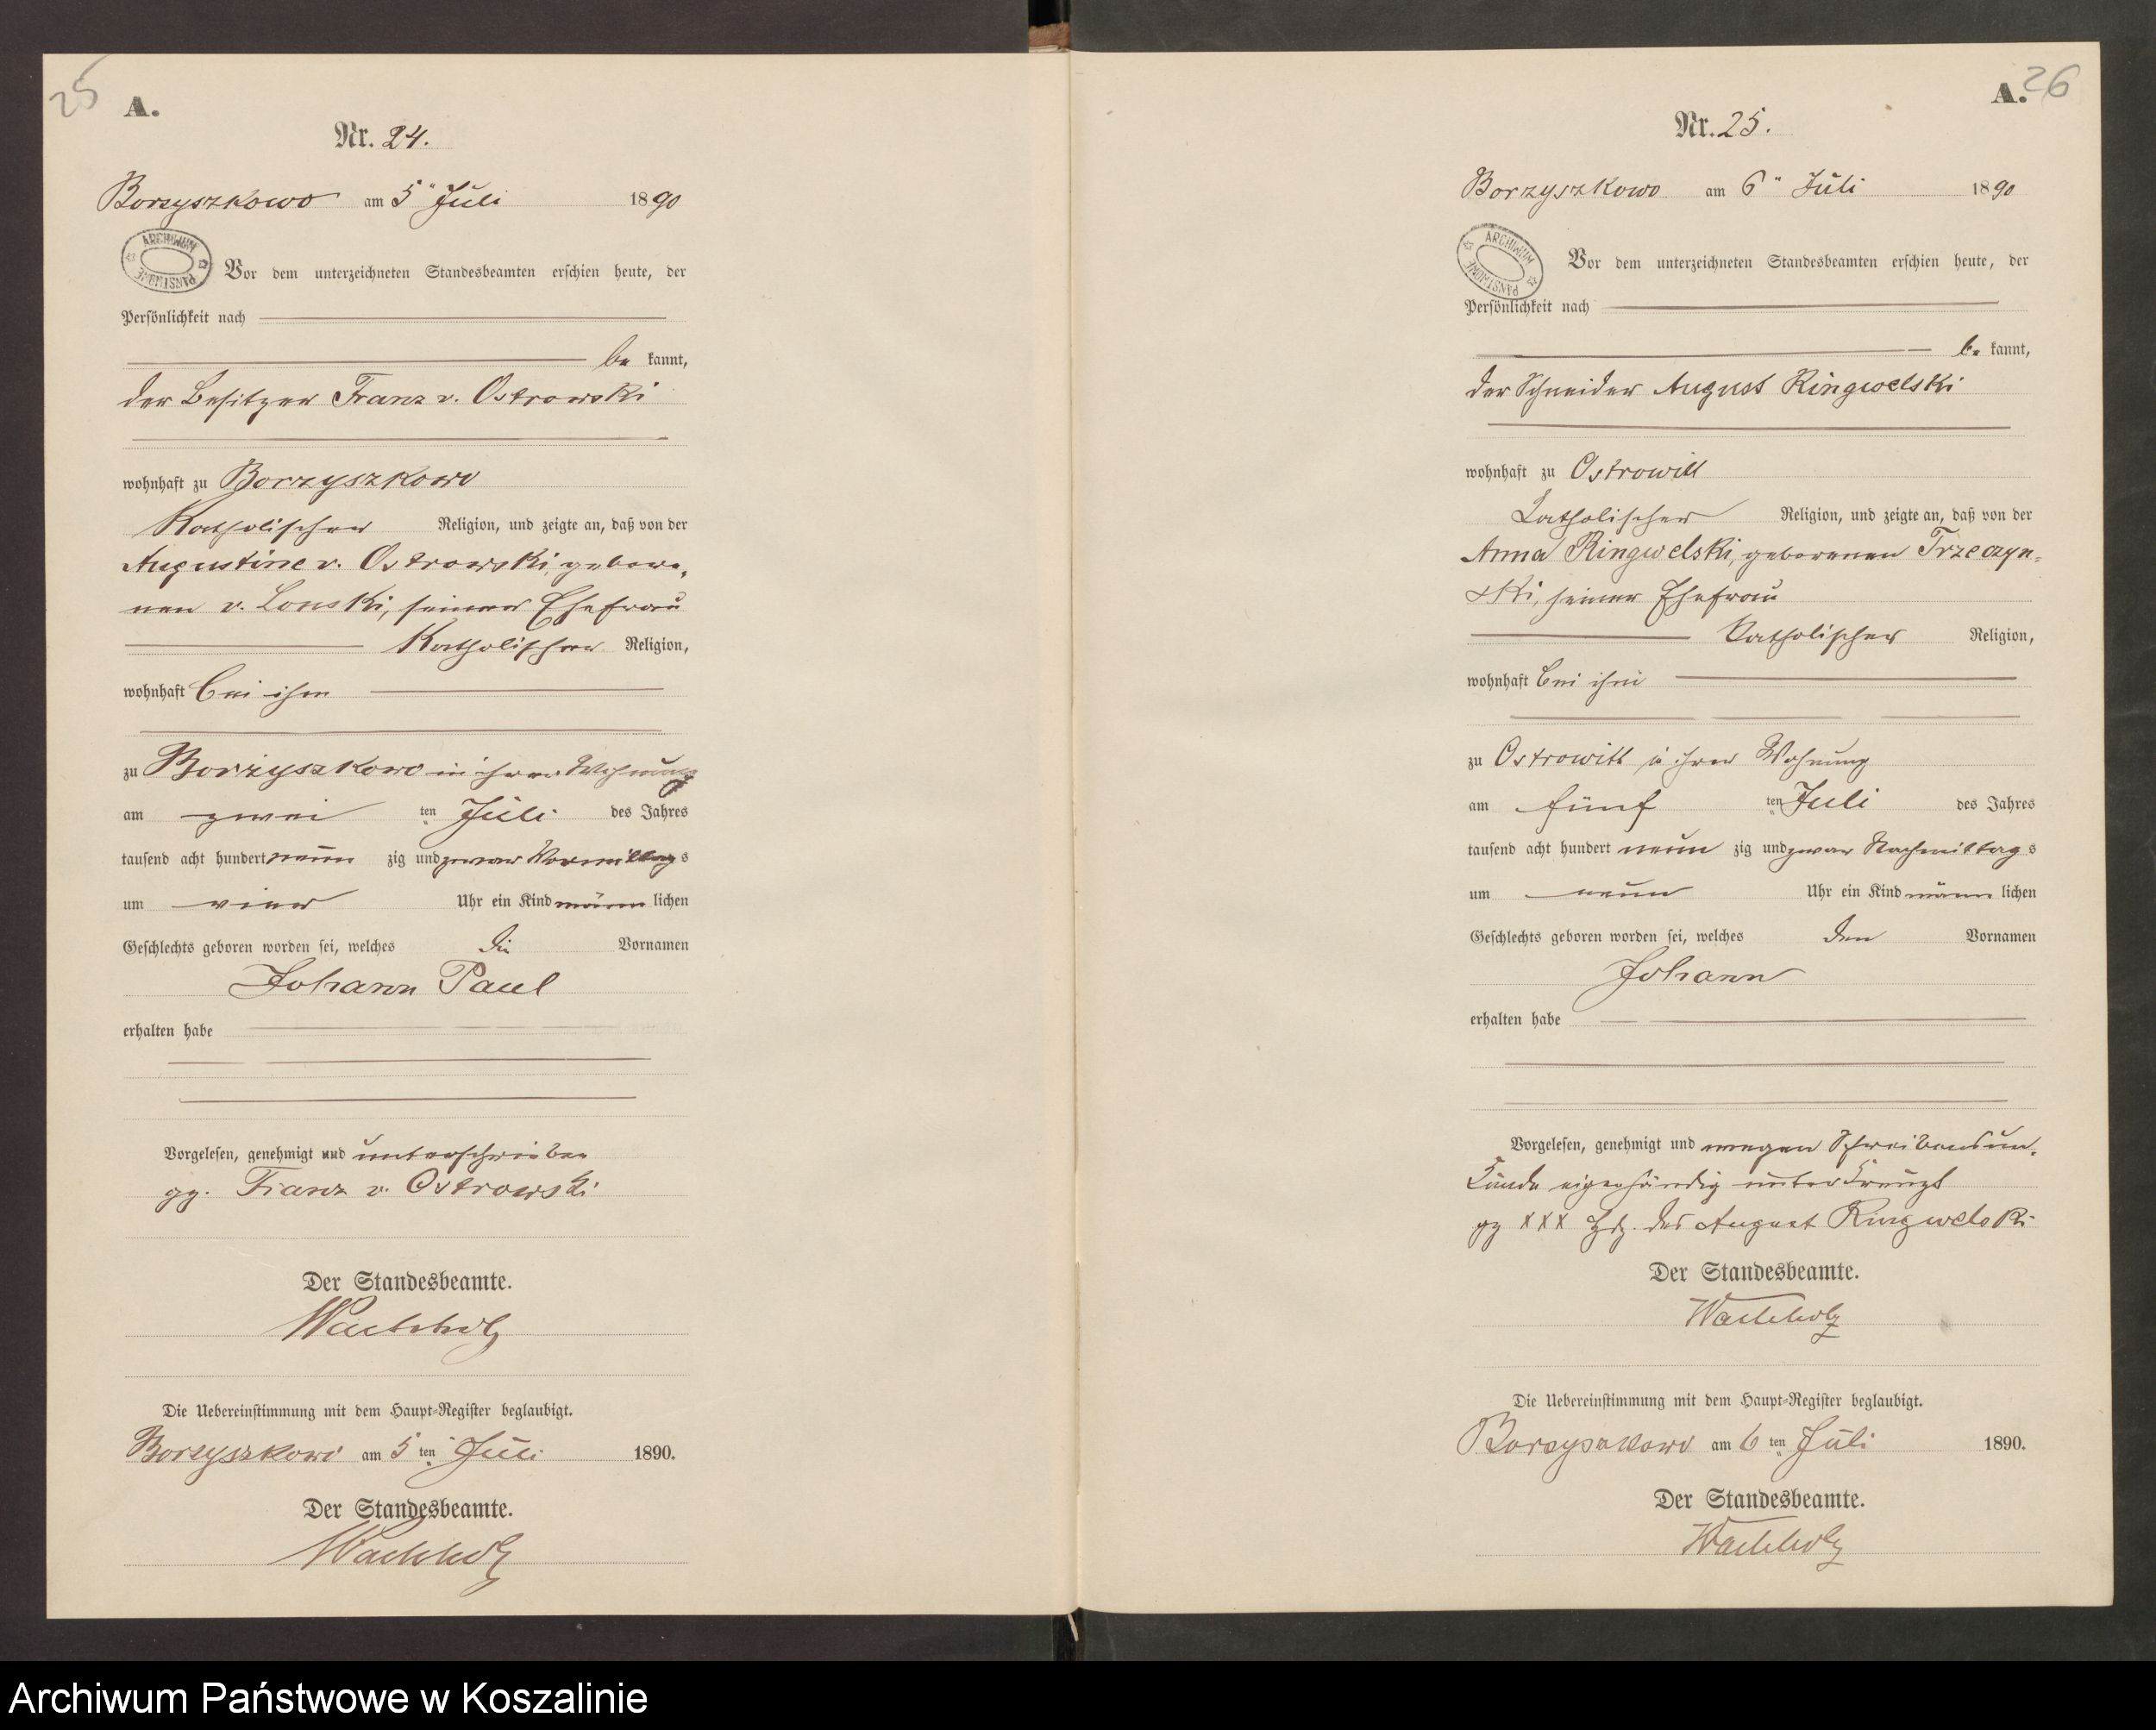 25
A.
Nr. 24.
Borzyszkowo am 5" Juli 1890
ARCHIWUM PAŃSTWOWE
Vor dem unterzeichneten Standesbeamten erschien heute, der
Persönlichkeit nach
be kannt,
der Besitzer Franz v. Ostrowski
wohnhaft zu Borzyszkowo
Katholischer Religion, und zeigte an, daß von der
Augustine v. Ostrowski, gebore-
nen v. Lonski, seiner Ehefrau
Katholischer Religion,
wohnhaft bei ihm
zu Borzyszkowo in ihrer Wohnung
am zwei ten Juli des Jahres
tausend acht hundert neun zig und zwar Vormittags
um vier Uhr ein Kind männ lichen
Geschlechts geboren worden sei, welches die Vornamen
Johann Paul
erhalten habe
Vorgelesen, genehmigt und unterschrieben
gg. Franz v. Ostrowski
Der Standesbeamte.
Wachholz
Die Uebereinstimmung mit dem Haupt-Register beglaubigt.
Borzyszkowo am 5 ten Juli 1890.
Der Standesbeamte.
Wachholz
A. 26
Nr. 25.
Borzyszkowo am 6" Juli 1890
ARCHIWUM PAŃSTWOWE
Vor dem unterzeichneten Standesbeamten erschien heute, der
Persönlichkeit nach
be kannt,
der Schneider August Ringwelski
wohnhaft zu Ostrowitt
Katholischer Religion, und zeigte an, daß von der
Anna Ringwelski, geborenen Trzeczyn-
ski, seiner Ehefrau
Katholischer Religion,
wohnhaft bei ihm
zu Ostrowitt in ihrer Wohnung
am fünf ten Juli des Jahres
tausend acht hundert neun zig und zwar Nachmittags
um neun Uhr ein Kind männ lichen
Geschlechts geboren worden sei, welches den Vornamen
Johann
erhalten habe
Vorgelesen, genehmigt und wegen Schreibensun-
kunde eigenhändig unterkreuzt
gg XXX Hdz. des August Ringwelski
Der Standesbeamte.
Wachholz
Die Uebereinstimmung mit dem Haupt-Register beglaubigt.
Borzyszkowo am 6 ten Juli 1890.
Der Standesbeamte.
Wachholz
Archiwum Państwowe w Koszalinie